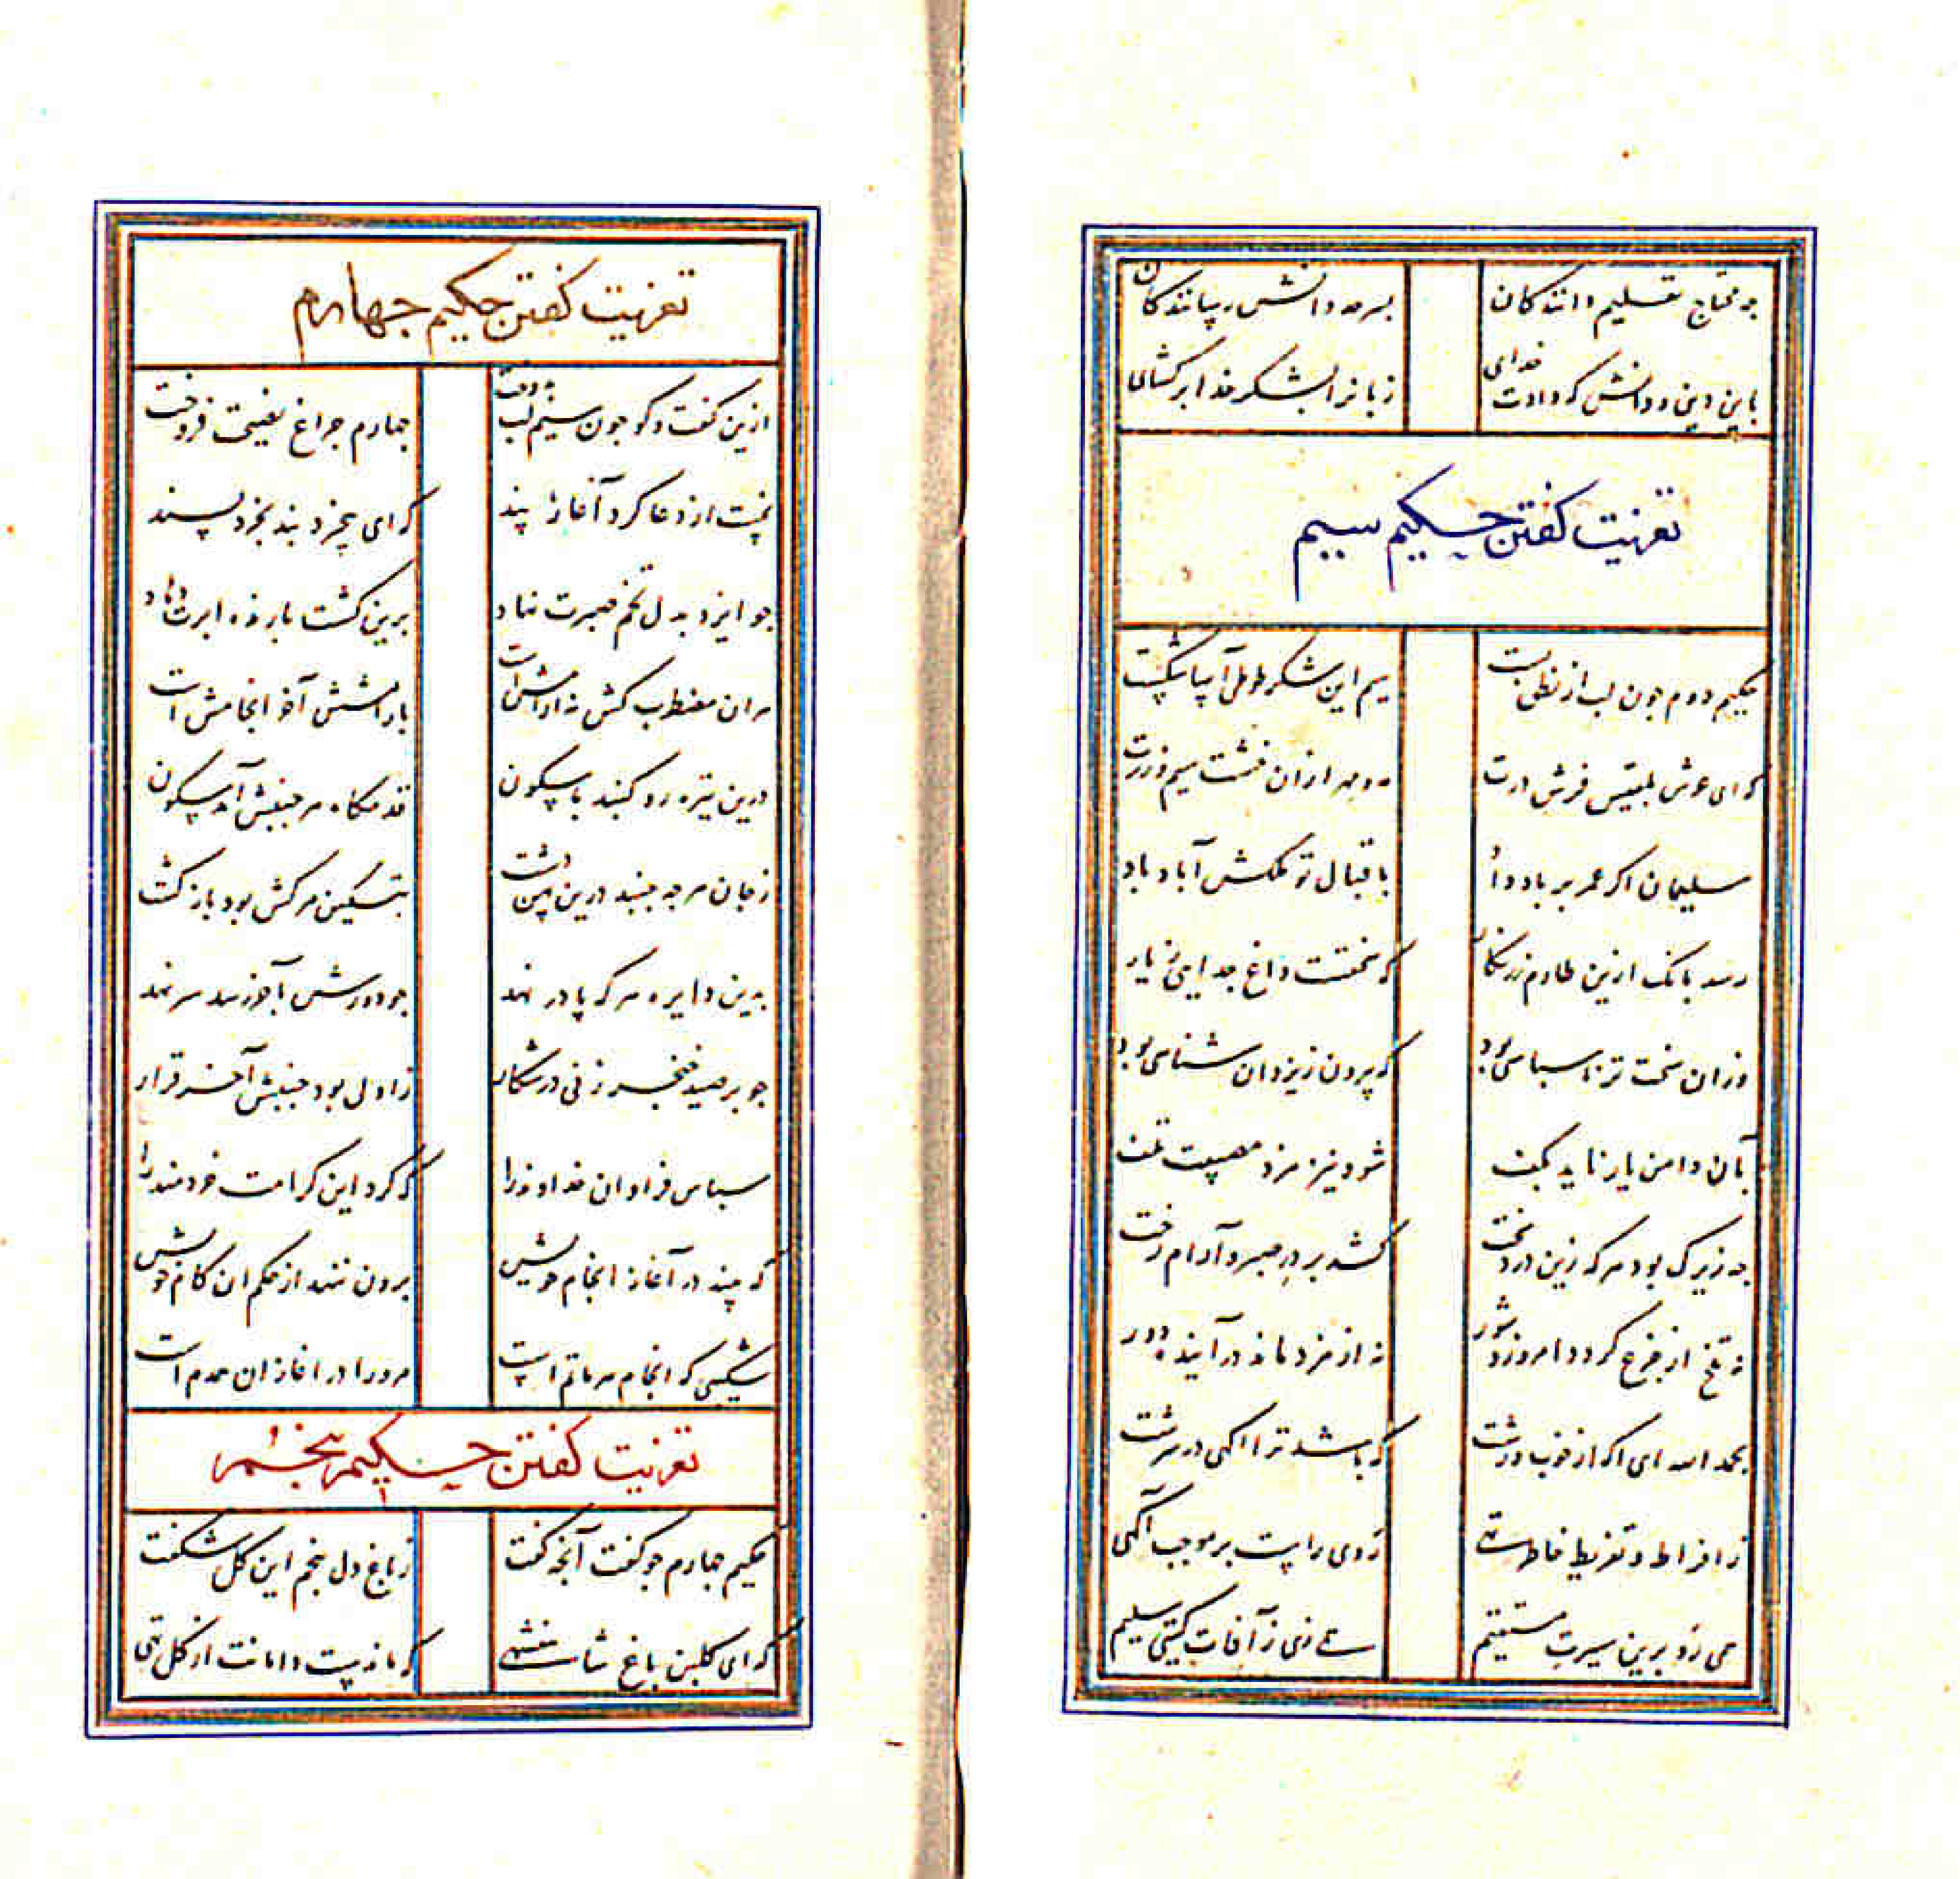 چه محتاج تعلیم دانندگان بسرحد دانش رسانندگان
باین دین و دانش که دادت خدای زبانرا بشکر خدا برکشای
تعزیت گفتن حکیم سیم
حکیم دوم چون لب از نطق بست سیم این شکر طوطی آسا شکست
که ای عرش بلقیس فرش درت مه و مهر ازان خشت سیم و زرت
سلیمان اگر عمر بر باد داد باقبال تو ملکش آباد باد
رسد بانک ازین طارم زرنگار که سختست داغ جدایی ز یار
وزان سخت تر ناسپاسی بود که بیرون ز یزدان شناسی بود
بآن دامن یار ناید بکف شود نیز مزد مصیبت تلف
چه زیرک بود هر که زین درد سخت کشد بر در صبر و آرام رخت
نه تلخ از جزع گردد امروز شور نه از مزد ماند در آینده دور
بحمد الله ای آگه از خوب و زشت که باشد ترا آگهی در سرشت
ز افراط و تفریط خاطر تهی روی راست بر موجب آگهی
همی رو برین سیرت مستقیم همی زی ز آفات گیتی سلیم
تعزیت گفتن حکیم چهارم
ازین گفت و گو چون سیم لب بدوخت چهارم چراغ نصیحت فروخت
نخست از دعا کرد آغاز پند که ای بخرد بند بخرد پسند
چو ایزد بدل تخم صبرت نهاد برین کشت بارنده ابرت دهاد
هر ان مضطرب کش نه آرامش است بآرامش آخر انجامش است
درین تیزه رو گنبد باسکون قدمگاه هر جنبش آمد سکون
ز جان هر چه جنبد درین پهن دشت بتسکین مرگش بود بازگشت
بدین دایره هر که پا در نهد چو دورش بآخر رسد سر نهد
چو بر صید خنجر زنی در شکار ز اول بود جنبش آخر قرار
سپاس فراوان خداوند را که کرد این کرامت خردمند را
که بیند در آغاز انجام خویش برون ننهد از حکم ان گام خویش
شکیبی که انجام هر ماتم است مرورا در اغاز ان همدم است
تعزیت گفتن حکیم پنجم
حکیم چهارم چو گفت آنچه گفت ز باغ دل پنجم این گل شکفت
که ای گلبن باغ شاهنشهی که ماندست دامانت از گل تهی